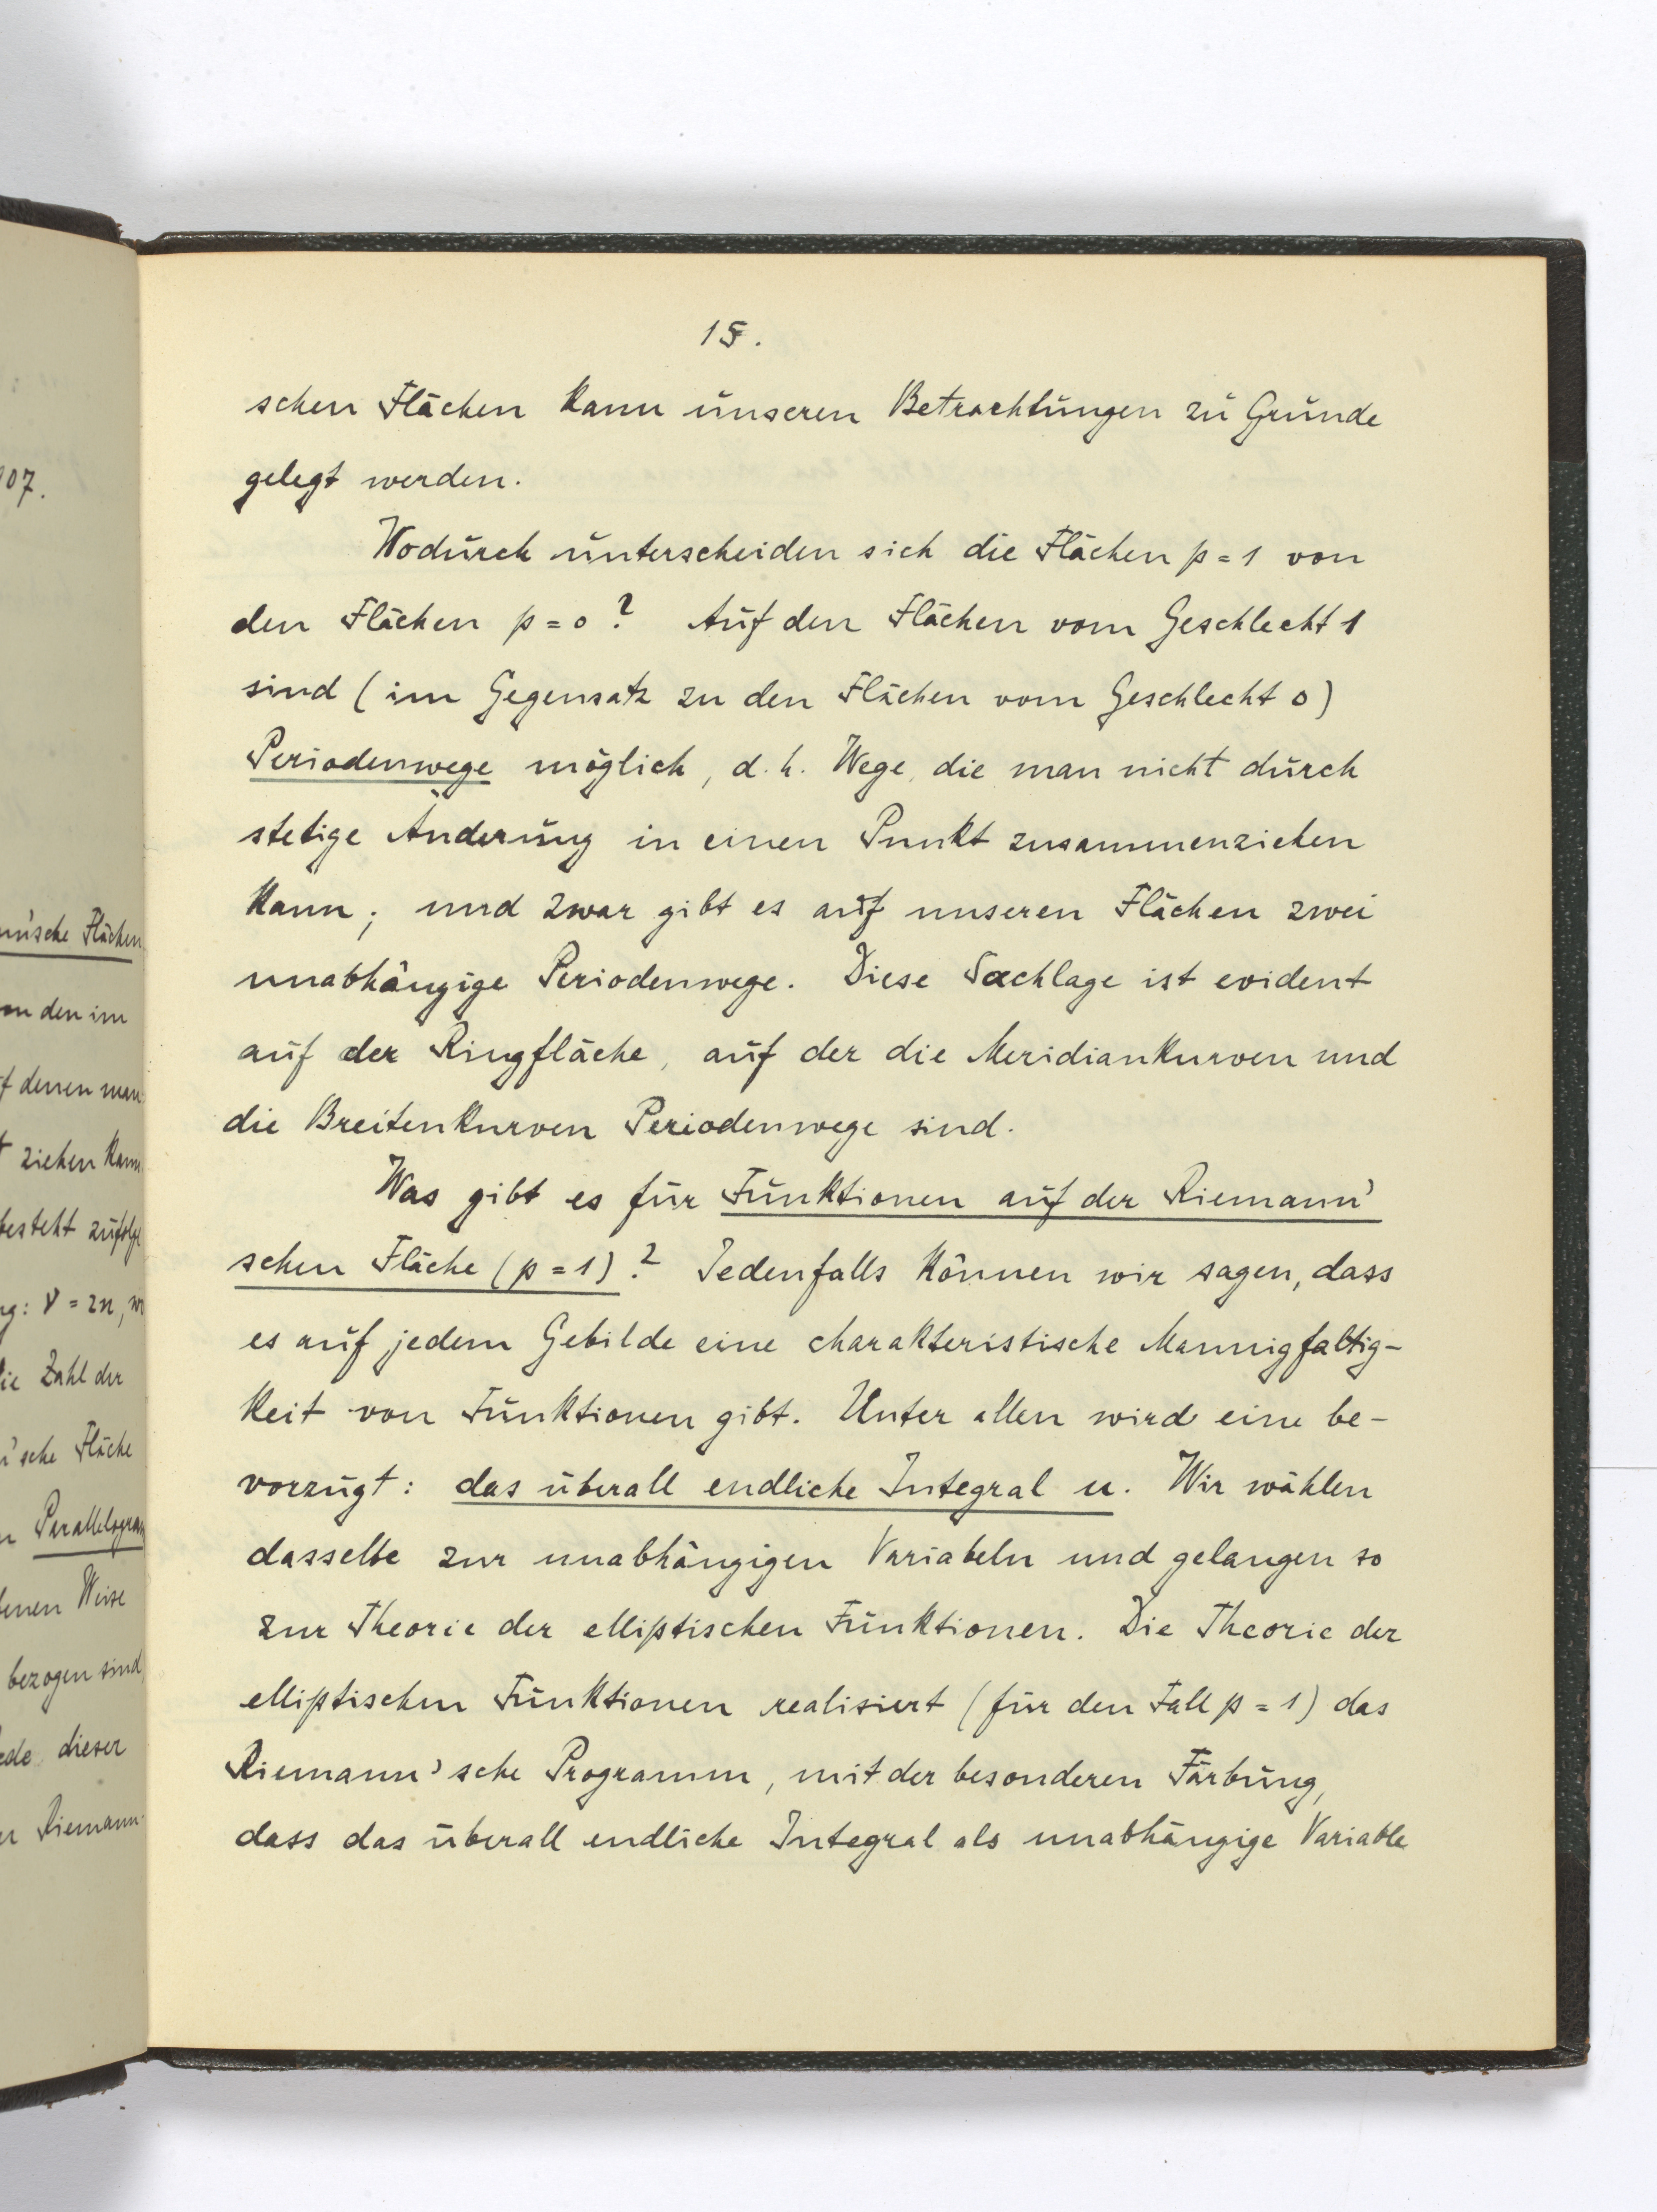 07.
nn'sche Flächen
den im
denen man
ziehen kann
besteht zufolge
ν = 2n,
Zahl der
'sche Fläche
Parallelogram
Weise
bezogen sind
dieser
Riemann'
15.
schen Flächen kann unseren Betrachtungen zu Grunde
gelegt werden.
Wodurch unterscheiden sich die Flächen p = 1 von
den Flächen p = 0? Auf den Flächen vom Geschlecht 1
sind (im Gegensatz zu den Flächen vom Geschlecht 0)
Periodenwege möglich, d.h. Wege, die man nicht durch
stetige Änderung in einen Punkt zusammenziehen
kann; und zwar gibt es auf unseren Flächen zwei
unabhängige Periodenwege. Diese Sachlage ist evident
auf der Ringfläche, auf der die Meridiankurven und
die Breitenkurven Periodenwege sind.
Was gibt es für Funktionen auf der Riemann'
schen Fläche (p = 1)? Jedenfalls können wir sagen, dass
es auf jedem Gebilde eine charakteristische Mannigfaltig-
keit von Funktionen gibt. Unter allen wird eine be-
vorzugt: das überall endliche Integral u. Wir wählen
dasselbe zur unabhängigen Variabeln und gelangen so
zur Theorie der elliptischen Funktionen. Die Theorie der
elliptischen Funktionen realisiert (für den Fall p = 1) das
Riemann'sche Programm, mit der besonderen Färbung,
dass das überall endliche Integral als unabhängige Variable